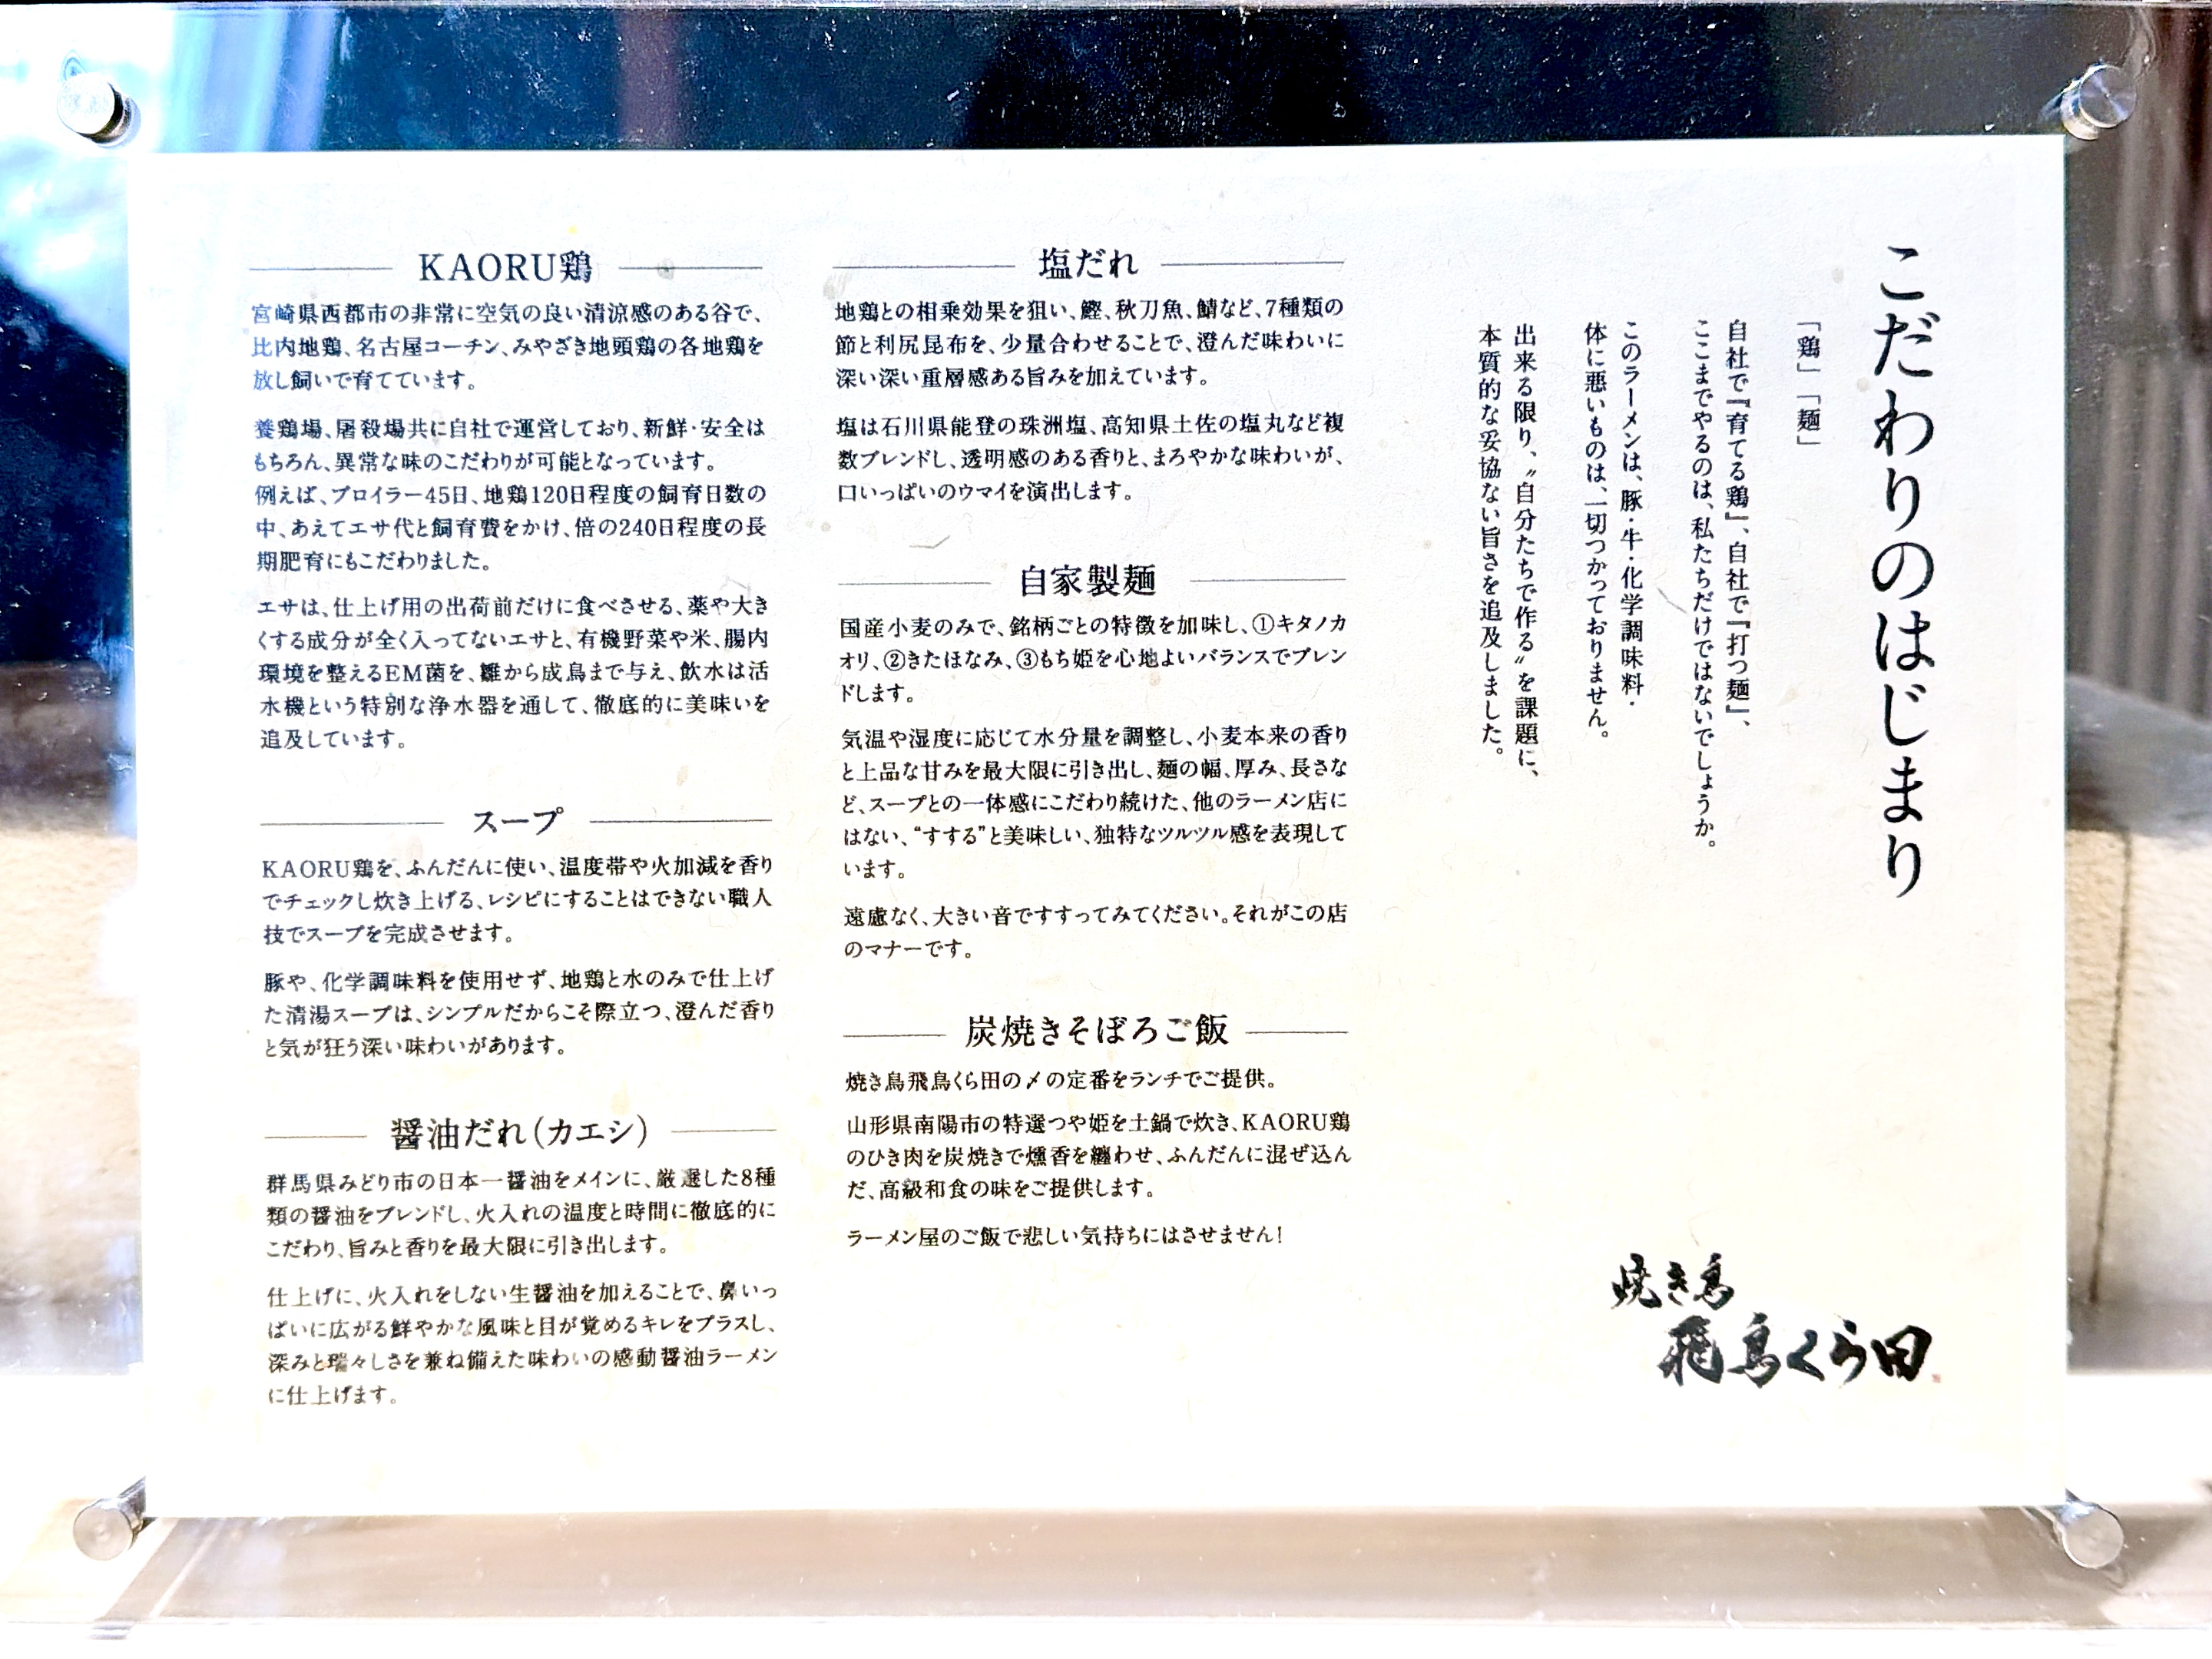 こだわりのはじまり
「鶏」「麺」
自社で『育てる鶏』、自社で『打つ麺』、
ここまでやるのは、私たちだけではないでしょうか。
このラーメンは、豚・牛・化学調味料・
体に悪いものは、一切つかっておりません。
出来る限り、〝自分たちで作る〟を課題に、
本質的な妥協ない旨さを追及しました。
焼き鳥
飛鳥くら田
KAORU鶏
宮崎県西都市の非常に空気の良い清涼感のある谷で、
比内地鶏、名古屋コーチン、みやざき地頭鶏の各地鶏を
放し飼いで育てています。
養鶏場、屠殺場共に自社で運営しており、新鮮・安全は
もちろん、異常な味のこだわりが可能となっています。
例えば、ブロイラー45日、地鶏120日程度の飼育日数の
中、あえてエサ代と飼育費をかけ、倍の240日程度の長
期肥育にもこだわりました。
エサは、仕上げ用の出荷前だけに食べさせる、薬や大き
くする成分が全く入ってないエサと、有機野菜や米、腸内
環境を整えるEM菌を、雛から成鳥まで与え、飲水は活
水機という特別な浄水器を通して、徹底的に美味いを
追及しています。
スープ
KAORU鶏を、ふんだんに使い、温度帯や火加減を香り
でチェックし炊き上げる、レシピにすることはできない職人
技でスープを完成させます。
豚や、化学調味料を使用せず、地鶏と水のみで仕上げ
た清湯スープは、シンプルだからこそ際立つ、澄んだ香り
と気が狂う深い味わいがあります。
醤油だれ(カエシ)
群馬県みどり市の日本一醤油をメインに、厳選した8種
類の醤油をブレンドし、火入れの温度と時間に徹底的に
こだわり、旨みと香りを最大限に引き出します。
仕上げに、火入れをしない生醤油を加えることで、鼻いっ
ぱいに広がる鮮やかな風味と目が覚めるキレをプラスし、
深みと瑞々しさを兼ね備えた味わいの感動醤油ラーメン
に仕上げます。
塩だれ
地鶏との相乗効果を狙い、鰹、秋刀魚、鯖など、7種類の
節と利尻昆布を、少量合わせることで、澄んだ味わいに
深い深い重層感ある旨みを加えています。
塩は石川県能登の珠洲塩、高知県土佐の塩丸など複
数ブレンドし、透明感のある香りと、まろやかな味わいが、
口いっぱいのウマイを演出します。
自家製麺
国産小麦のみで、銘柄ごとの特徴を加味し、①キタノカ
オリ、②きたほなみ、③もち姫を心地よいバランスでブレン
ドします。
気温や湿度に応じて水分量を調整し、小麦本来の香り
と上品な甘みを最大限に引き出し、麺の幅、厚み、長さな
ど、スープとの一体感にこだわり続けた、他のラーメン店に
はない、“すする”と美味しい、独特なツルツル感を表現して
います。
遠慮なく、大きい音ですすってみてください。それがこの店
のマナーです。
炭焼きそぼろご飯
焼き鳥飛鳥くら田の〆の定番をランチでご提供。
山形県南陽市の特選つや姫を土鍋で炊き、KAORU鶏
のひき肉を炭焼きで燻香を纏わせ、ふんだんに混ぜ込ん
だ、高級和食の味をご提供します。
ラーメン屋のご飯で悲しい気持ちにはさせません!